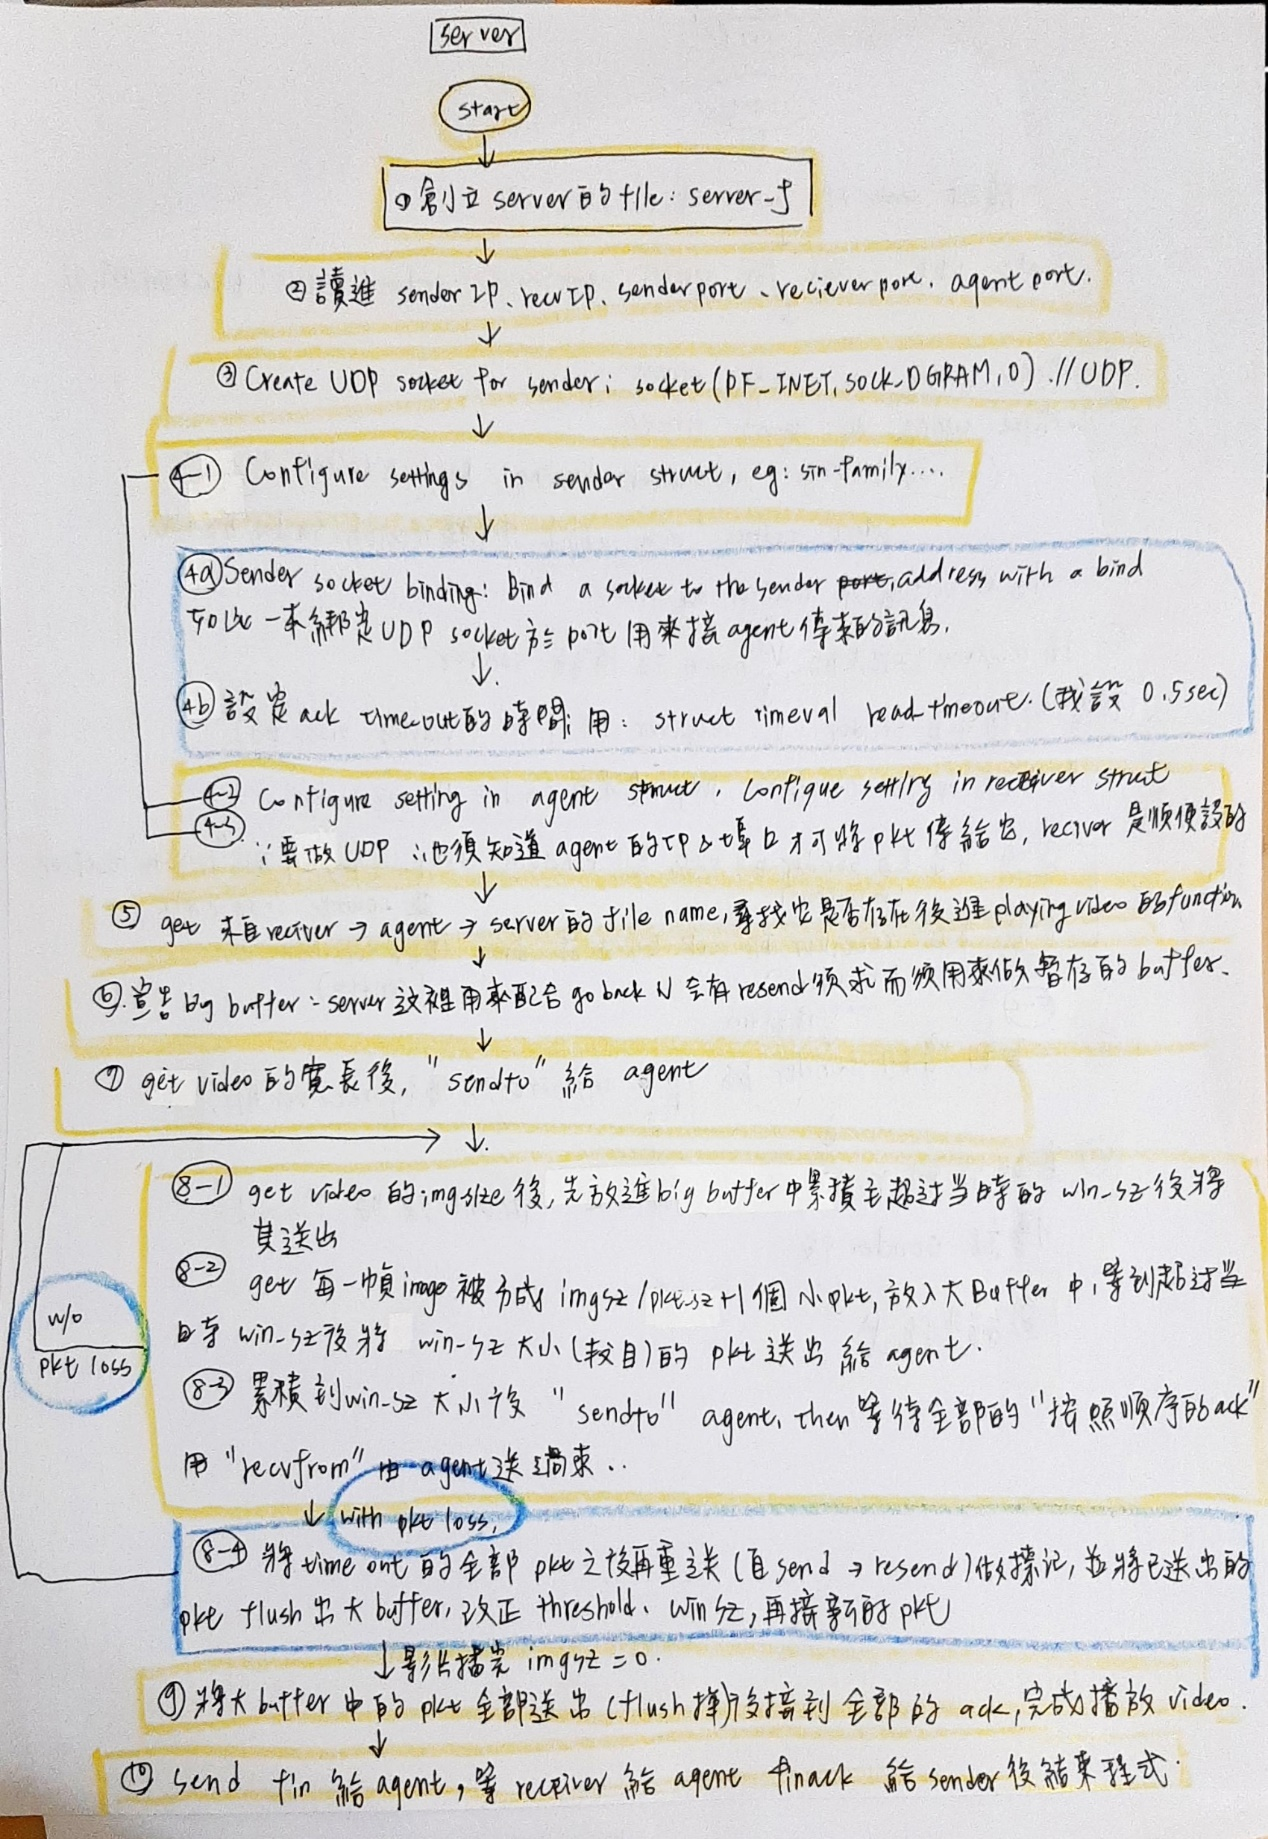 server
start
①創立server的file: server_f
②讀進 sender IP、recv IP、sender port、reciever port、agent port.
③Create UDP socket for sender: socket(PF_INET, SOCK_DGRAM, 0) .//UDP.
4-1 Configure settings in sender struct, eg: sin-family....
4a Sender socket binding: Bind a socket to the sender port, address with a bind
如此一來綁定UDP socket於port用來接agent傳來的訊息.
4b 設定ack timeout的時間: 用: struct timeval read_timeout.(我設 0.5sec)
4-2 Configure setting in agent struct, configue setting in receiver struct
4-3 ∵要做UDP ∴也須知道agent的IP&埠口才可將pkt傳給它, reciver是順便設的
⑤ get 來自reciver → agent → server的file name, 尋找它是否存在後進playing video的function
⑥.宣告big buffer: server這裡用來配合go back N 會有resend須求而須用來做暫存的buffer.
⑦ get video的寬長後, "sendto" 給 agent
8-1 get video 的imgsize後, 先放進big buffer中累積至超過當時的 win-sz後將
其送出
8-2 get 每一幀image被分成 imgsz/pkt-sz+1個小pkt, 放入大Buffer中, 等到超過當
時win-sz後將 win-sz大小(數目)的 pkt送出給agent.
w/o
pkt loss
8-3 累積到win-sz大小後 "sendto" agent, then等待全部的"按照順序的ack"
用 "recvfrom" 由agent送過來..
with pkt loss,
8-4 將time out的全部pkt之後再重送(自send → resend)做標記, 並將已送出的
pkt flush出大buffer, 改正 threshold、win sz, 再接新的pkt
影片播完 imgsz = 0.
⑨將大buffer中的pkt全部送出(flush掉)後接到全部的 ack, 完成播放video.
⑩ send fin給agent, 等receiver給agent finack 給sender後結束程式.